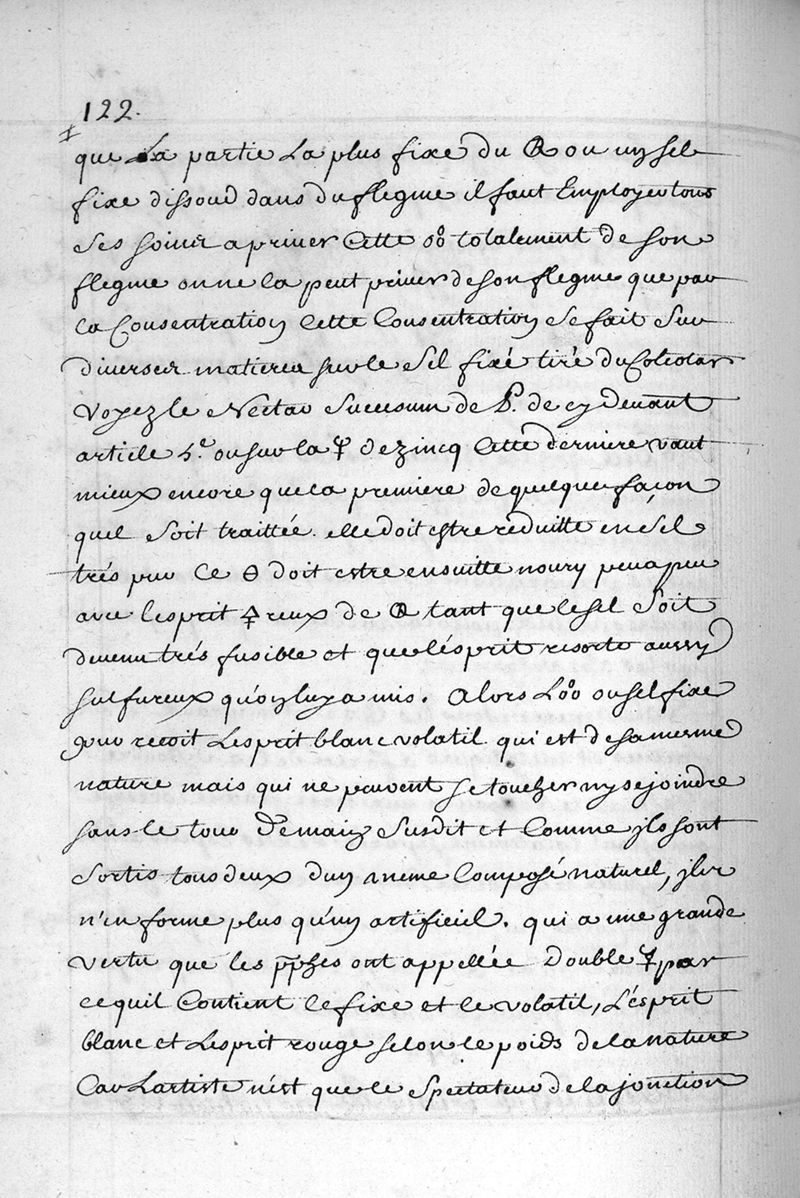 122.
que La partie La plus fixe du ou un sel
fixe dissoud dans du flegme il faut Employer tous
ses soins a priver Cette totalement de son
flegme on ne la peut priver de son flegme que par
la Consentration Cette Consentration se fait sur
diverses matieres sur le sel fixé tiré du Colcotar
Voyez le Nectar Succesum de P. de cy devant
article ou sur la de zincq Cette derniere vaut
mieux encore que la premiere de quelque façon
quel soit traittée. elle doit estre reduitte en sel
trés pur Ce 🜔 doit estre ensuitte noury peu a peu
avec l'esprit 🜍 reux de tant que le sel soit
devenu trés fusible et que l'ésprit resorte aussy
sulfureux qu'on luy a mis. Alors ou sel fixe
pur recoit Lesprit blanc volatil qui est de sa mesme
nature mais qui ne peuvent se toucher ny se joindre
sans le tour de main susdit et Comme ils sont
sortis tous deux d'un méme Composé naturel, ils
n'en forme plus qu'un artificiel. qui a une grande
vertu que les ont appellée Double par
ce quil Contient le fixe et le volatil, L'ésprit
blanc et Lesprit rouge selon le poids de la nature
Car Lartiste n'est que le Spectateur de la jonction